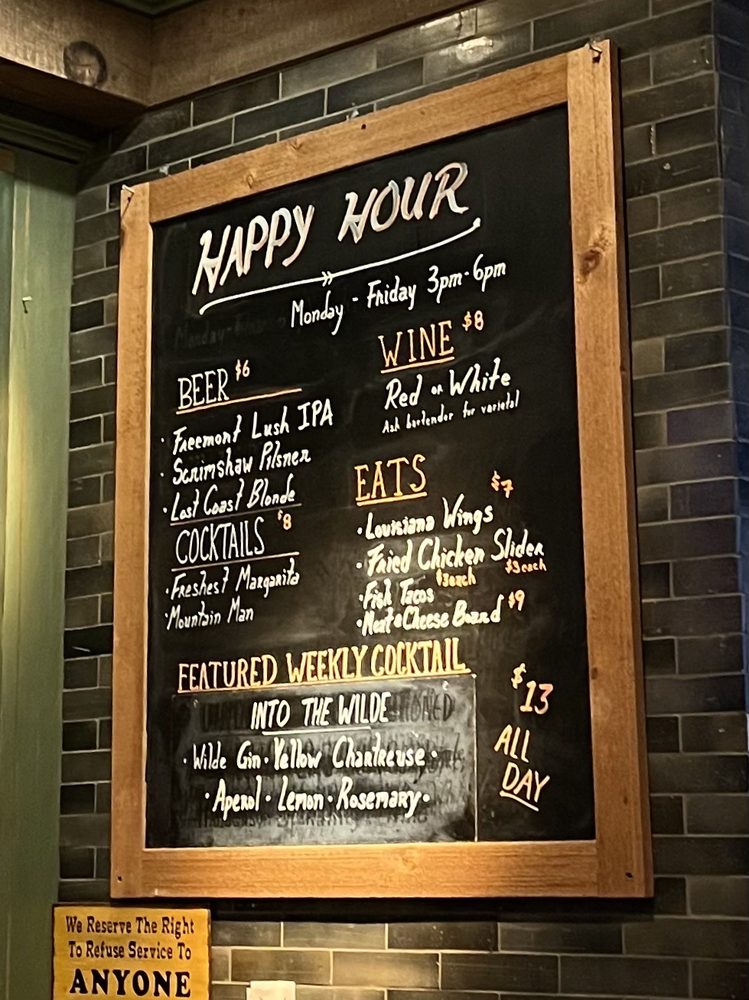 HAPPY HOUR
Monday - Friday 3pm-6pm
BEER $6
· Freemont Lush IPA
· Scrimshaw Pilsner
· Lost Coast Blonde
COCKTAILS $8
· Freshest Margarita
· Mountain Man
WINE $8
Red or White
Ask bartender for varietal
EATS
· Louisiana Wings $7
· Fried Chicken Slider $3 each
· Fish Tacos $3 each
· Meat & Cheese Board $9
FEATURED WEEKLY COCKTAIL
INTO THE WILDE
· Wilde Gin · Yellow Chartreuse ·
· Aperol · Lemon · Rosemary ·
$13
ALL
DAY
We Reserve The Right
To Refuse Service To
ANYONE